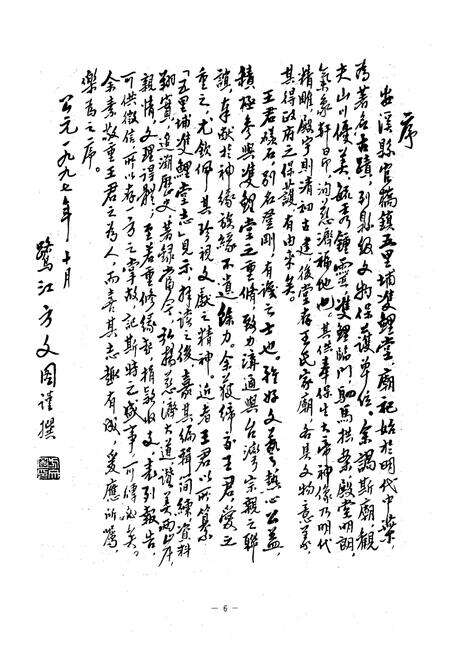 序
安溪縣官橋鎮五里埔雙鯉堂廟祀始於明代中葉,
為著名古蹟,列縣級文物保護單位。余謁斯廟觀
夫山川優美毓秀鍾靈,雙鯉臨門駟馬拱案殿堂明朗,
氣象軒昂,洵慈濟福地也。其供奉保生大帝神像乃明代
精雕殿宇則清初古建後堂存王氏家廟,各具文物意義,
其得政府之保護有由來矣。
王君 別名 剛,有識之士也。雅好文藝熱心公益,
積極參與雙鯉堂之重修,致力溝通與台灣宗親之聯
誼,奉獻於神緣族緣不遺餘力。余獲締交王君,愛之
重之,尤欽佩其珍視文獻之精神。近者王君以所纂
「五里埔雙鯉堂志」見示拜讀之後嘉其編輯 練資料
翔實,追溯歷史著錄當今,弘揚慈濟大道讚美兩岸
親情文理 ,至若重修緣起捐款收支,表列報告,
可供徵信所以存一方之掌故記斯時之盛事可傳必矣。
余素敬重王君之為人而喜其志趣有成,爰應所囑,
樂為之序。
公元一九九七年十月
鷺江方文圖謹撰
— 6 —